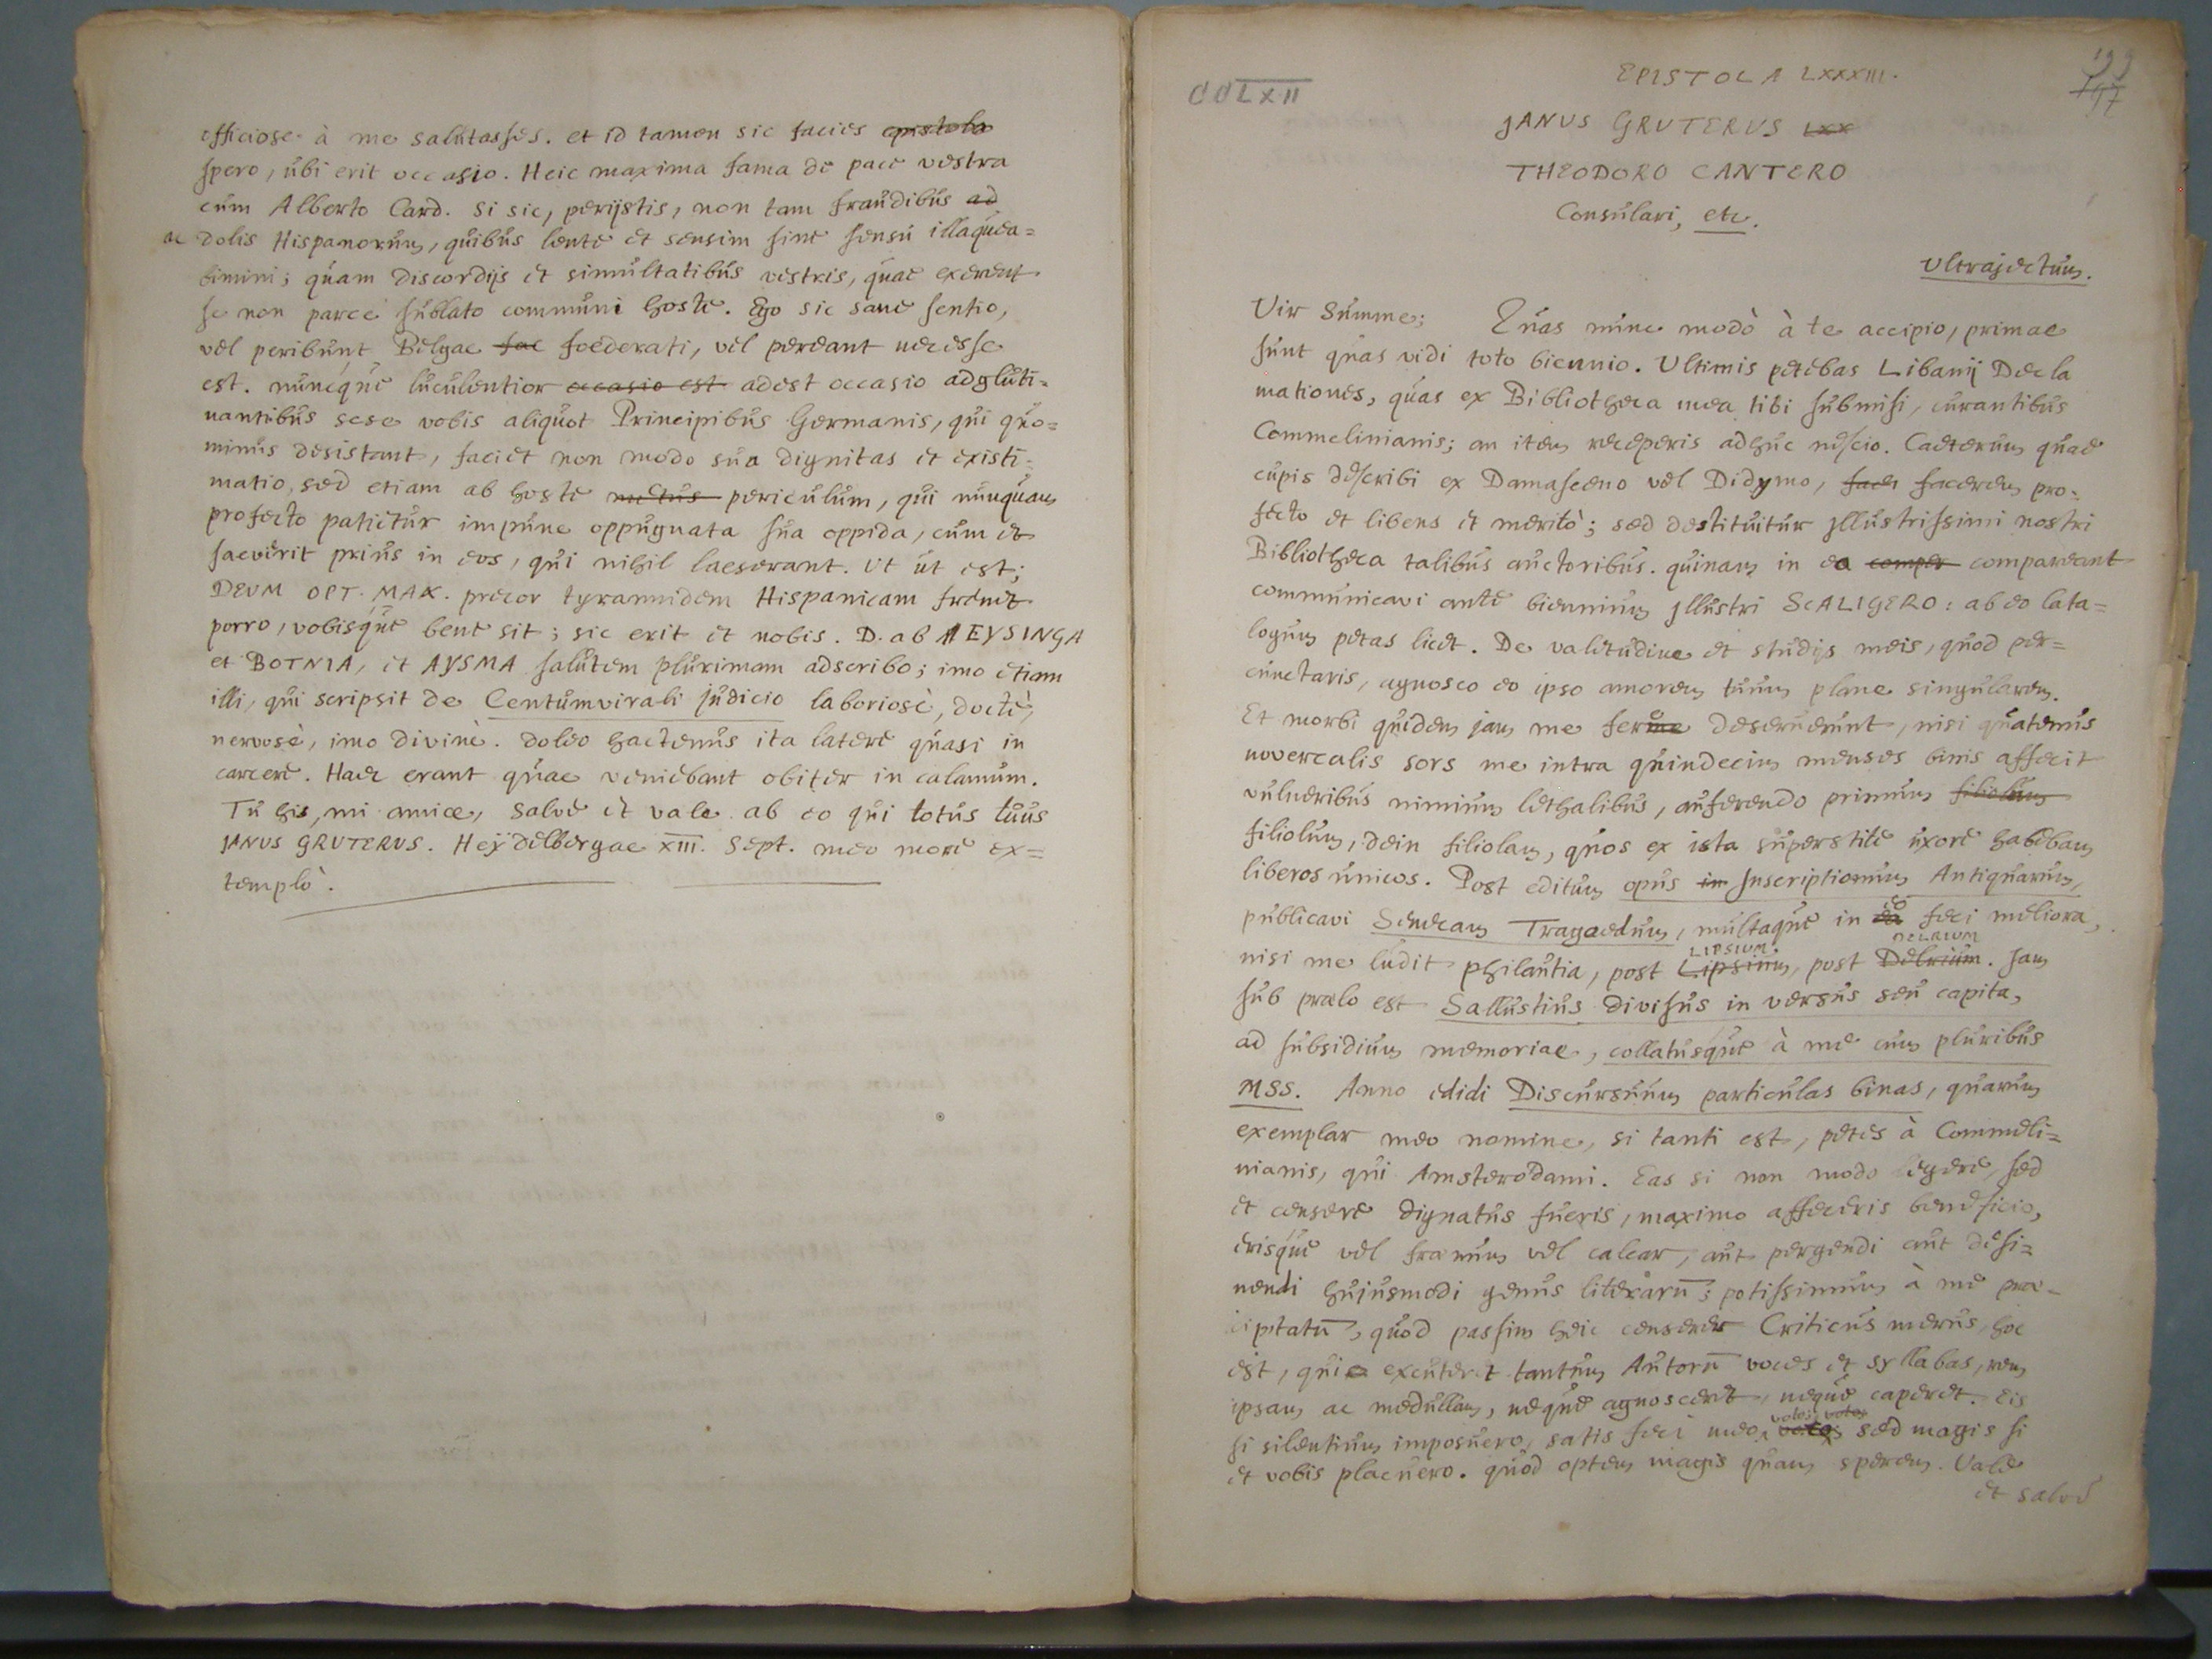 officiose à me salutasses. et id tamen sic facies epistola
spero, ubi erit occasio. Heic maxima fama de pace vestra
cum Alberto Card. si sic, perijstis, non tam fraudibus ad
ac dolis Hispanorum, quibus lente et sensim sine sensu illaquea=
bimini; quam discordijs et simultatibus vestris, quae exerent
se non parce sublato communi hoste. Ego sic sane sentio,
vel peribunt Belgae fae foederati, vel pereant necesse
est. nuncque luculentior occasio est adest occasio adgluti=
nantibus sese vobis aliquot Principibus Germanis, qui quo=
minus desistant, faciet non modo sua dignitas et existi=
matio, sed etiam ab hoste metus periculum, qui nunquam
profecto patietur impune oppugnata sua oppida, cum et
saevierit prius in eos, qui nihil laeserant. Ut ut est;
DEUM OPT. MAX. precor tyrannidem Hispanicam frenet
porro, vobisque bene sit; sic erit et nobis. D. ab AEYSINGA
et BOTNIA, et AYSMA salutem plurimam adscribo; imo etiam
illi, qui scripsit de Centumvirali judicio laboriosè, doctè,
nervosè, imo divinè. doleo hactenus ita latere quasi in
carcere. Haec erant quae veniebant obiter in calamum.
Tu his, mi amice, salve et vale ab eo qui totus tuus
JANUS GRUTERUS. Heydelbergae XIII. Sept. meo more ex=
templò.
CCLXII
EPISTOLA LXXXIII.
199
197
JANUS GRUTERUS LXX
THEODORO CANTERO
Consulari, etc.
Ultrajectum.
Vir Summe; Quas nunc modò à te accipio, primae
sunt quas vidi toto biennio. Ultimis petebas Libanij Decla
mationes, quas ex Bibliotheca mea tibi submisi, curantibus
Commelinianis; an item receperis adhuc nescio. Caeterum quae
cupis describi ex Damasceno vel Didymo, facer facerem pro=
fecto et libens et meritò; sed destituitur Jllustrissimi nostri
Bibliotheca talibus auctoribus. quinam in ea comper compareant
communicavi ante biennium Jllustri SCALIGERO: ab eo Cata=
logum petas licet. De valetudine et studijs meis, quod per=
cunctaris, agnosco eo ipso amorem tuum plane singularem.
Et morbi quidem jam me ferme deseruerunt, nisi quatenus
novercalis sors me intra quindecim menses binis affecit
vulneribus nimium lethalibus, auferendo primum filiolum
filiolum, dein filiolam, quos ex ista superstite uxore habebam
liberos unicos. Post editum opus in Jnscriptionum Antiquarum,
publicavi Senecam Tragaedum, multaque in ea eo feci meliora,
nisi me ludit philautia, post Lipsium LIPSIUM, post Delrium DELRIUM. Jam
sub praelo est Sallustius divisus in versus seu capita,
ad subsidium memoriae, collatusque à me cum pluribus
MSS. Anno edidi Discursuum particulas binas, quarum
exemplar meo nomine, si tanti est, petes à Commeli=
nianis, qui Amsterodami. Eas si non modo legere, sed
et censere dignatus fueris, maximo affeceris beneficio,
erisque vel fraenum vel calcar, aut pergendi aut desi=
nendi hujusmodi genus literarū; potissimum à me prae=
ciptatū, quod passim heic censerer Criticus merus, hoc
est, qui excuteret tantum Autorū voces et syllabas, rem
ipsam ac medullam, neque agnosceret, neque caperet. Eis
si silentium imposuero, satis feci meo voto; sed magis si
et vobis placuero. quod optem magis quam sperem. Vale
et salve